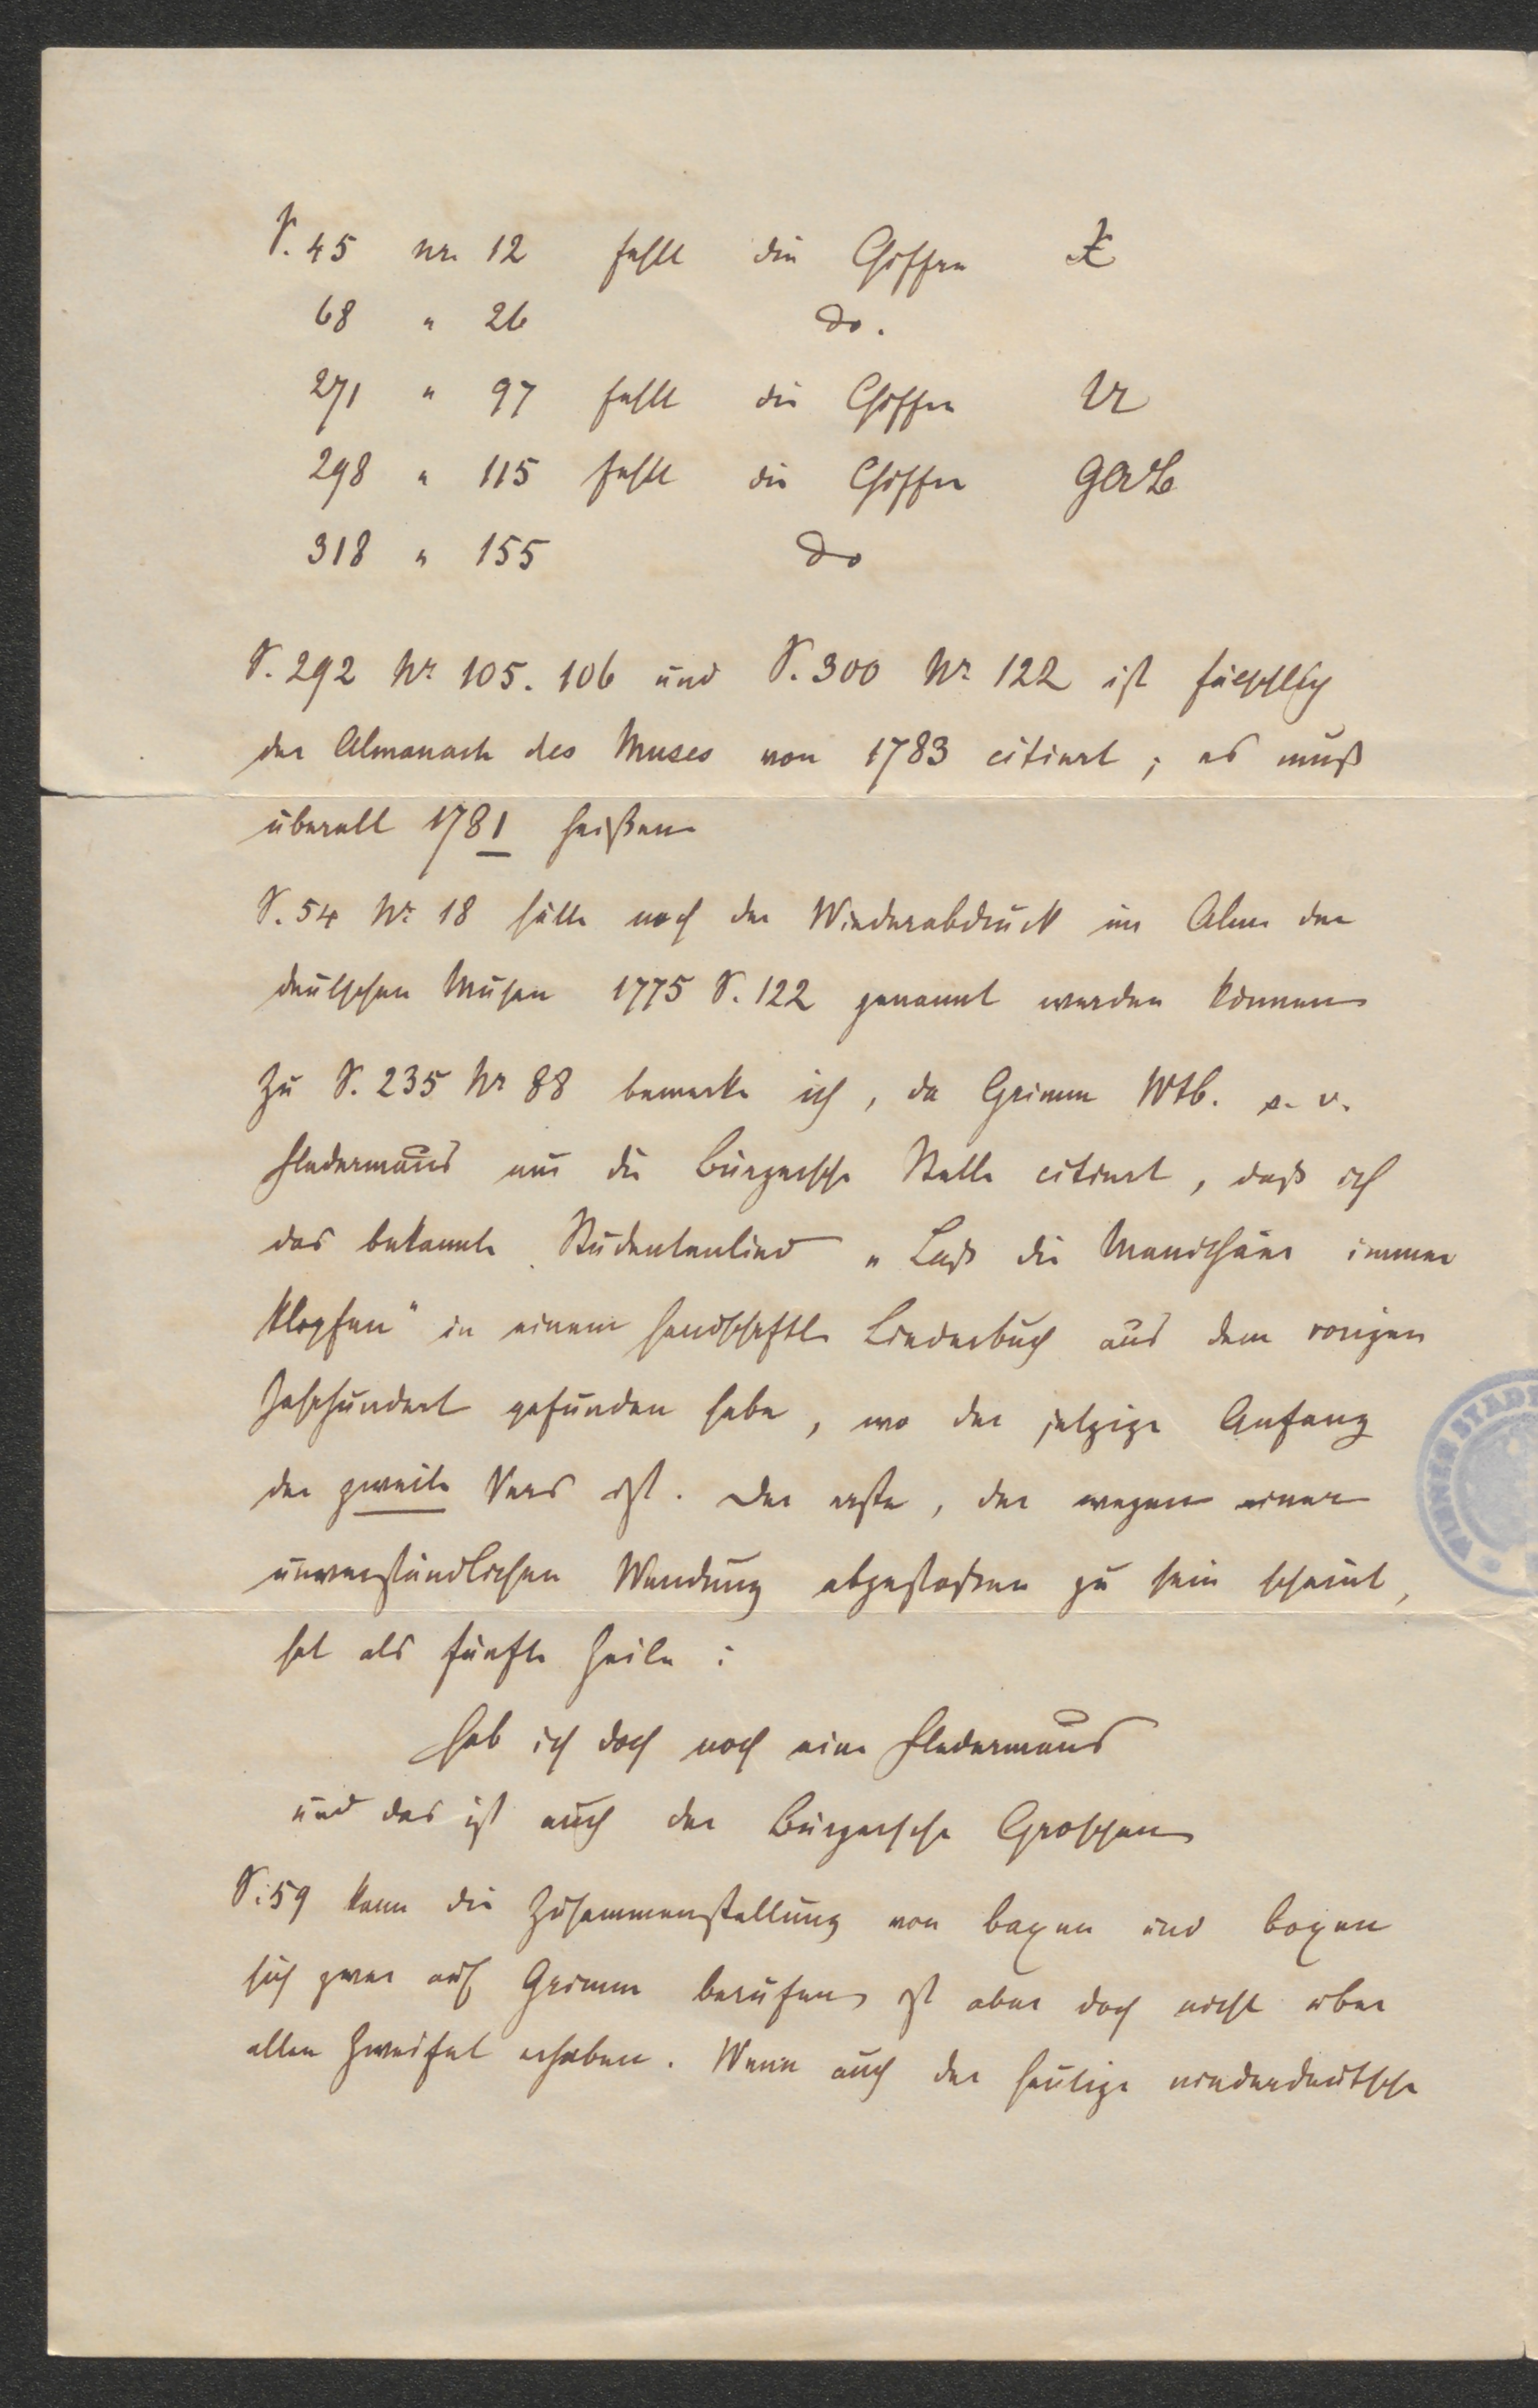 S. 45 nr. 12 fehlt die Chiffre X
68 " 26 do.
271 " 97 fehlt die Chiffre U
298 " 115 fehlt die Chiffre
318 " 155 do
S. 292 Nr 105. 106 und S. 300 Nr 122 ist fälschlich
der Almanach des Muses von 1783 citiert; es muß
überall 1781 heißen
S. 54 Nr. 18 hätte noch der Wiederabdruck im Alm. der
deutschen Musen 1775 S. 122 genannt werden können
Zu S. 235 Nr 88 bemerke ich, da Grimm Wtb. s. v.
Fledermaus nur die Bürgersche Stelle citiert, daß ich
das bekannte Studentenlied „Laß die Manichäer immer
klopfen" in einem handschriftl. Liederbuch aus dem vorigen
Jahrhundert gefunden habe, wo der jetzige Anfang
der zweite Vers ist. Der erste, der wegen einer
unverständlichen Wendung abgestoßen zu sein scheint,
hat als fünfte Zeile:
Hab ich doch noch eine Fledermaus
und das ist auch der Bürgersche Groschen
S. 59 kann die Zusammenstellung von baxen und boxen
sich zwar auf Grimm berufen ist aber doch nicht über
allen Zweifel erhaben. Wenn auch der heutige niederdeutsche
WIENER STADT